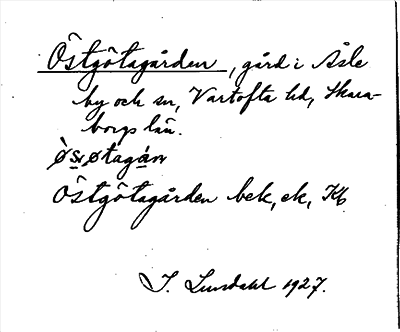 Östgötagården, gård i Åsle
by och sn, Vartofta hd, Skara-
borgs län.
Östgötagården bek, ek, Kb
I. Lundahl 1927.